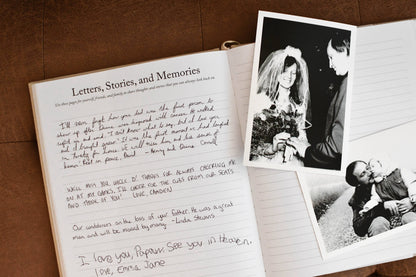 Letters, Stories, and Memories
Use these pages for yourself, friends, and family to share thoughts and stories that you can always look back on.
I'll never forget how your dad was the first person to
show up after Emma was born. will convey. He walked
right in and said, "I don't know what to say, but I love you
and I brought pizza." It was the first moment we had laughed
in. I will miss him and his sense of
humor. Rest in peace, Dave! - Henry and Emma Correll
WE'LL MISS YOU, UNCLE D! THANKS FOR ALWAYS CHEERING ME
ON AT MY GAMES. I'LL CHEER FOR THE CUBS FROM OUR SEATS
AND THINK OF YOU! LOVE, CAMDEN
Our condolences on the loss of your father. He was a great
man and will be missed by many. -Linda Stevens
I love you, Papaw. See you in Heaven.
Love, Emma Jane